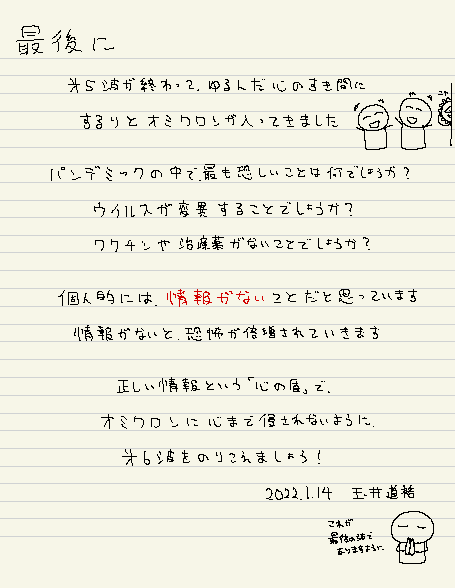 最後に
第5波が終わって、ゆるんだ心のすき間に
するりとオミクロンが入ってきました
パンデミックの中で、最も恐しいことは何でしょうか？
ウイルスが変異することでしょうか？
ワクチンや治療薬がないことでしょうか？
個人的には、情報がないことだと思っています
情報がないと、恐怖が倍増されていきます
正しい情報という「心の盾」で、
オミクロンに心まで侵されないように、
第6波をのりこえましょう！
2022.1.14 玉井道裕
これが
最後の波で
ありますように